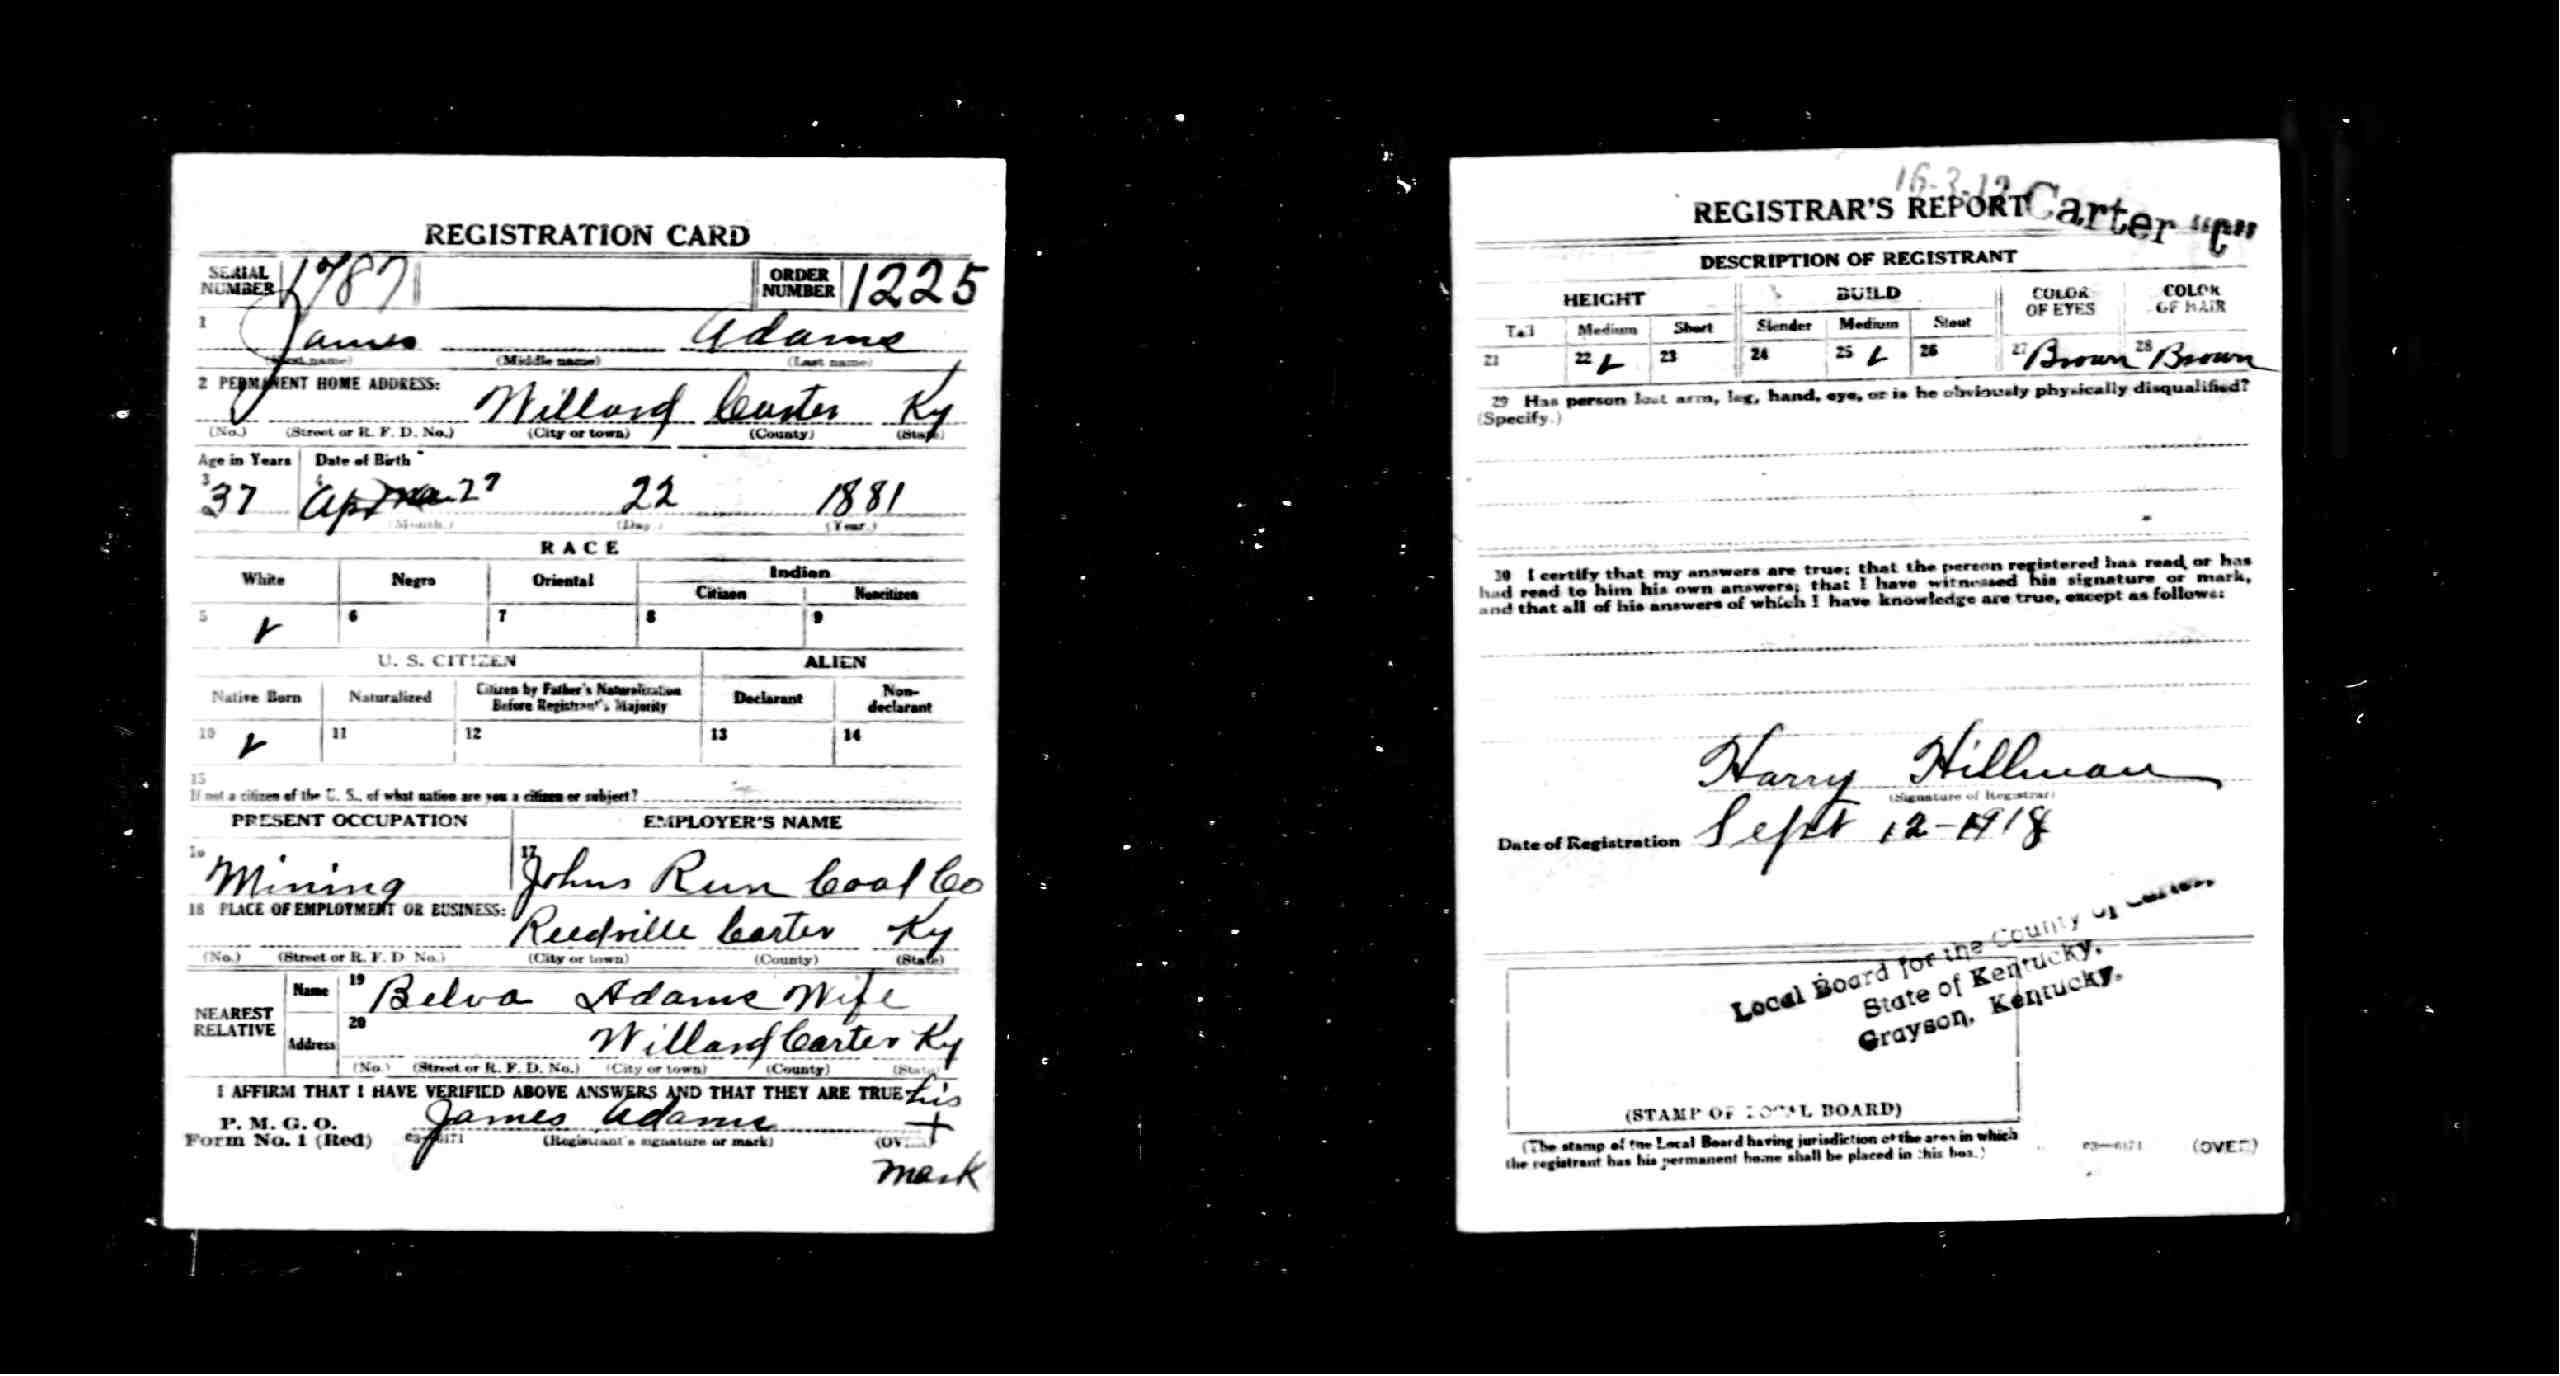 REGISTRATION CARD
SERIAL NUMBER 1787 ORDER NUMBER 1225
1 James Adams
(First name) (Middle name) (Last name)
2 PERMANENT HOME ADDRESS:
Willard Carter Ky
(No.) (Street or R. F. D. No.) (City or town) (County) (State)
Age in Years Date of Birth
3 37 4 Apr 27 22 1881
(Month.) (Day.) (Year.)
RACE
White Negro Oriental Indian
Citizen Noncitizen
5 ✓ 6 7 8 9
U. S. CITIZEN ALIEN
Native Born Naturalized Citizen by Father's Naturalization Before Registrant's Majority Declarant Non-declarant
10 ✓ 11 12 13 14
15
If not a citizen of the U. S., of what nation are you a citizen or subject?
PRESENT OCCUPATION EMPLOYER'S NAME
16 Mining 17 Johns Run Coal Co
18 PLACE OF EMPLOYMENT OR BUSINESS:
Reedville Carter Ky
(No.) (Street or R. F. D. No.) (City or town) (County) (State)
NEAREST RELATIVE Name 19 Belva Adams Wife
Address 20 Willard Carter Ky
(No.) (Street or R. F. D. No.) (City or town) (County) (State)
I AFFIRM THAT I HAVE VERIFIED ABOVE ANSWERS AND THAT THEY ARE TRUE his
P. M. G. O. James Adams +
Form No. 1 (Red) 03—6171 (Registrant's signature or mark) (OVER)
mark
16-3-12
REGISTRAR'S REPORT Carter "C"
DESCRIPTION OF REGISTRANT
HEIGHT BUILD COLOR OF EYES COLOR OF HAIR
Tall Medium Short Slender Medium Stout
21 22 ✓ 23 24 25 ✓ 26 27 Brown 28 Brown
29 Has person lost arm, leg, hand, eye, or is he obviously physically disqualified?
(Specify.)
30 I certify that my answers are true; that the person registered has read or has
had read to him his own answers; that I have witnessed his signature or mark,
and that all of his answers of which I have knowledge are true, except as follows:
Harry Hillman
(Signature of Registrar)
Date of Registration Sept 12-1918
Local Board for the County of Carter,
State of Kentucky,
Grayson, Kentucky.
(STAMP OF LOCAL BOARD)
(The stamp of the Local Board having jurisdiction of the area in which
the registrant has his permanent home shall be placed in this box.)
03—6171 (OVER)